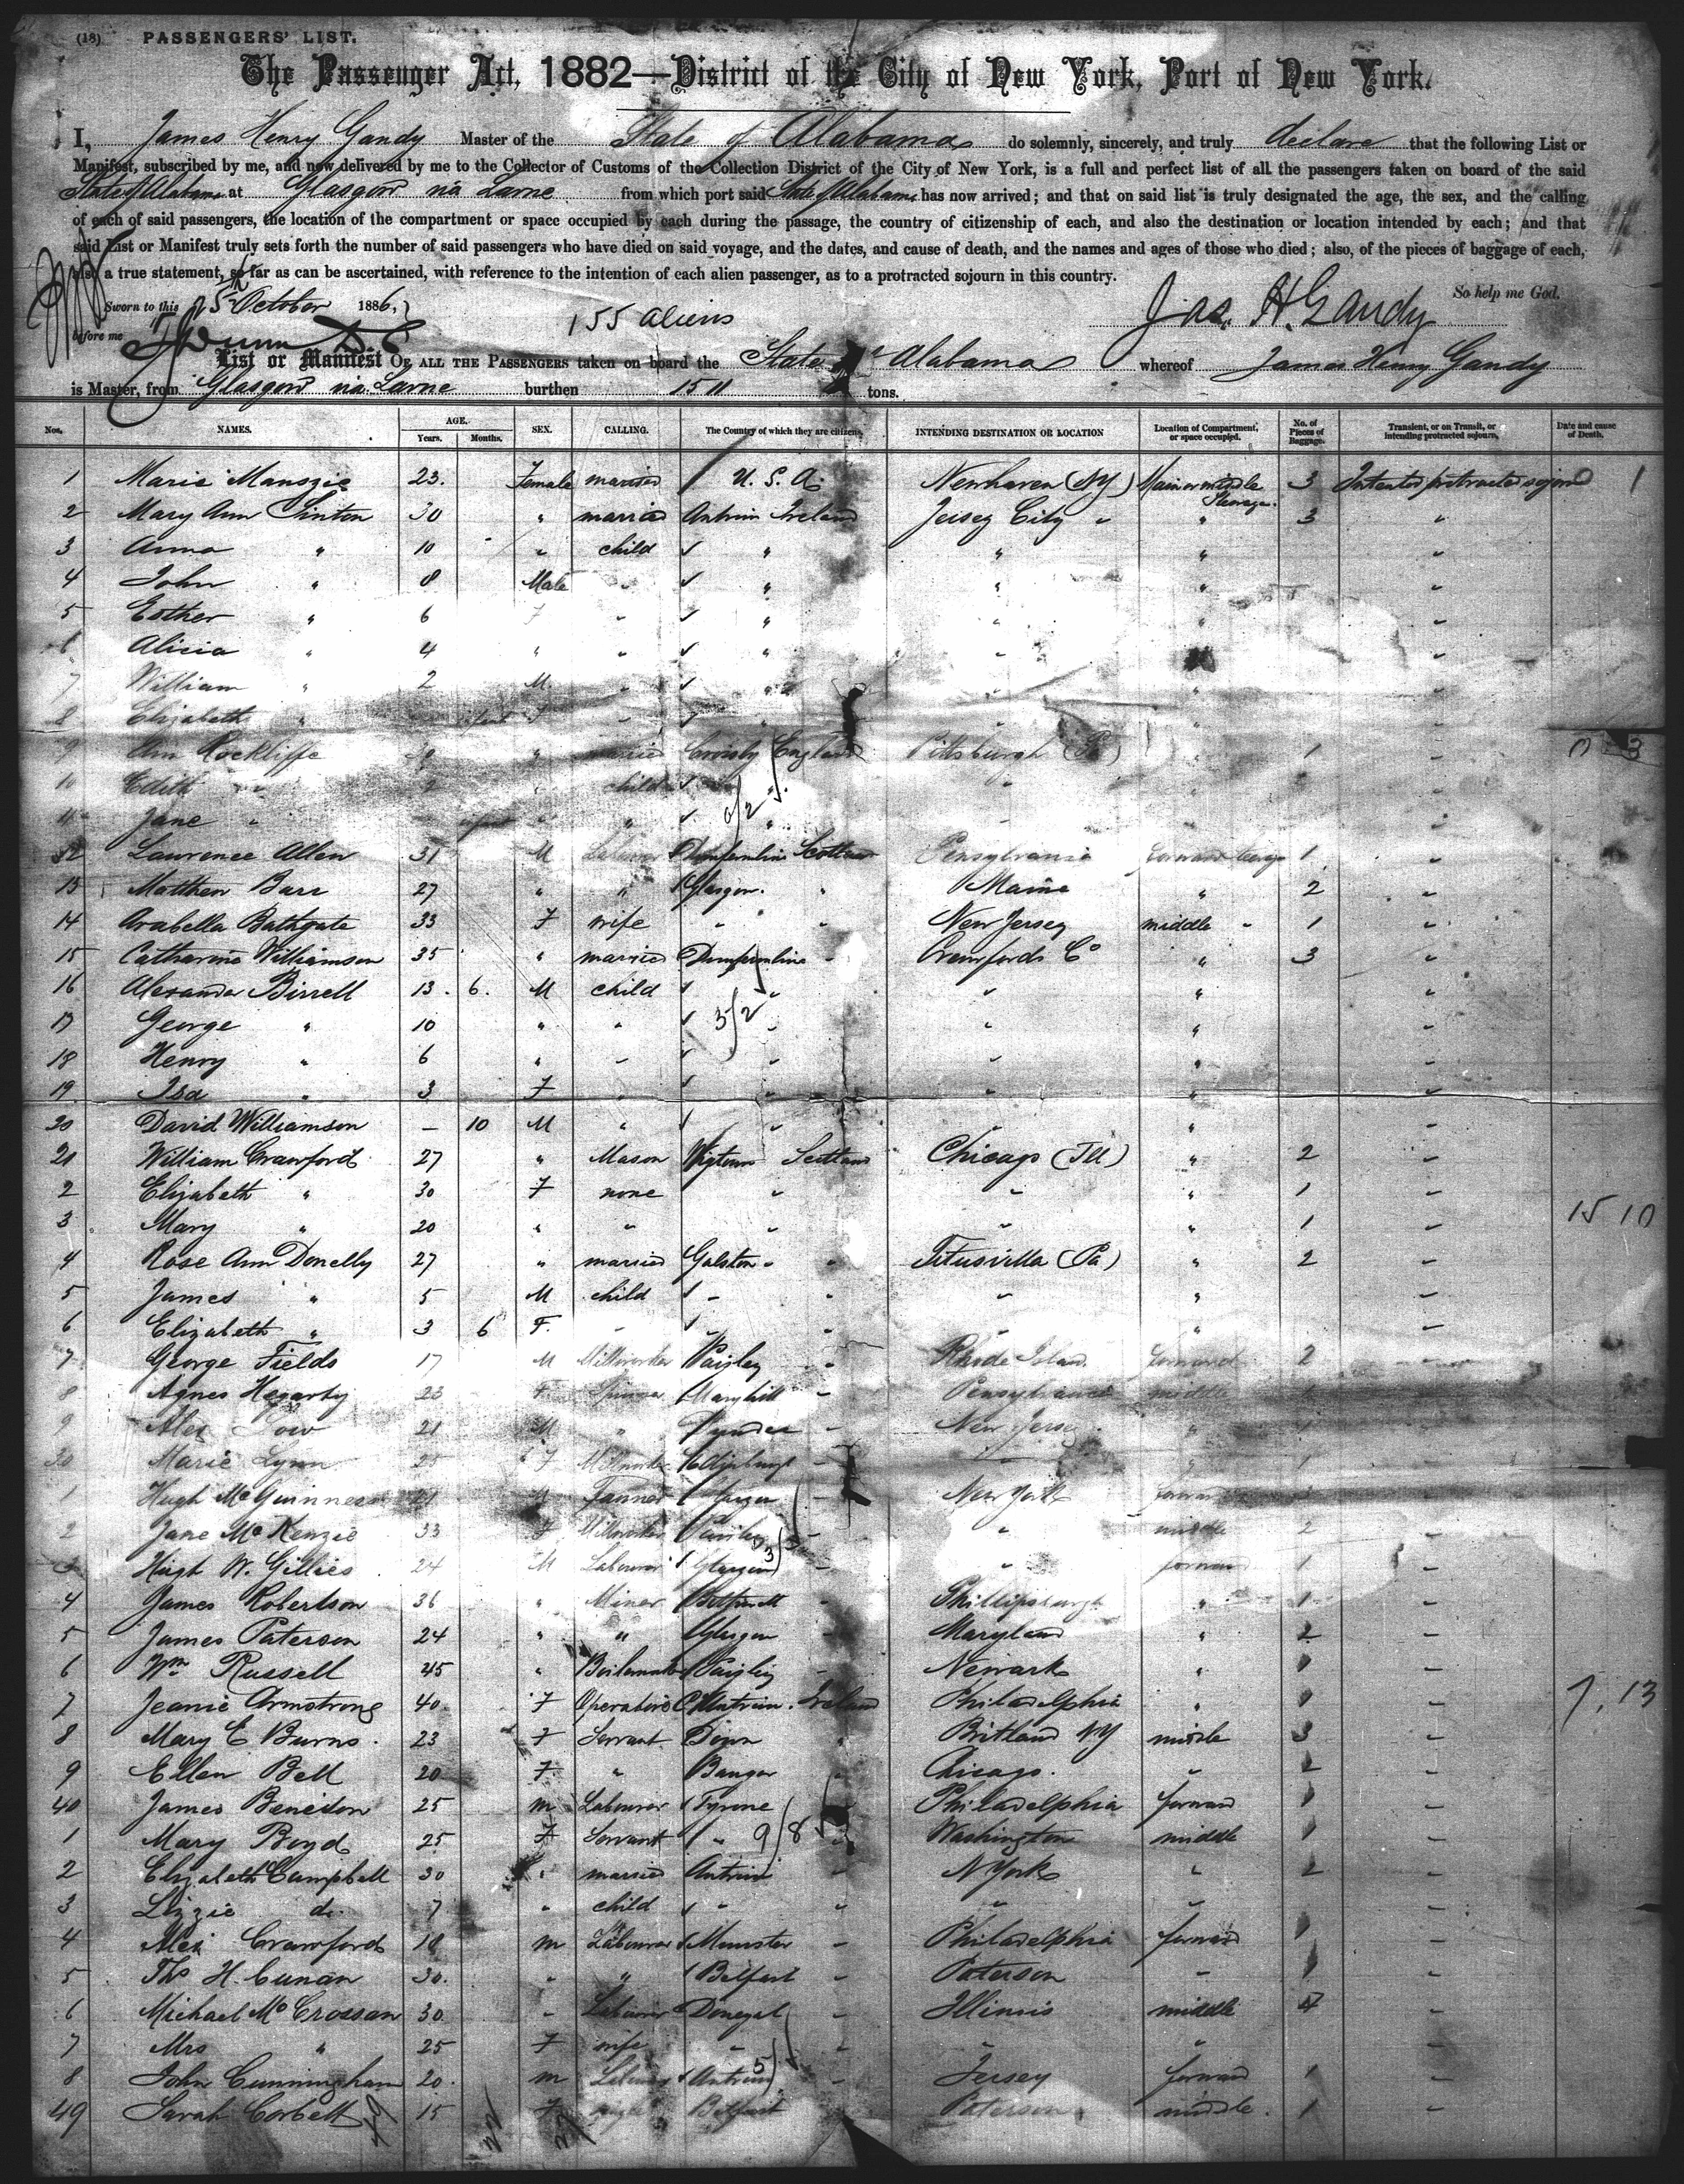 (18) PASSENGERS' LIST.
The Passenger Act, 1882—District of the City of New York, Port of New York.
I, James Henry Gandy Master of the State of Alabama do solemnly, sincerely, and truly declare that the following List or
Manifest, subscribed by me, and now delivered by me to the Collector of Customs of the Collection District of the City of New York, is a full and perfect list of all the passengers taken on board of the said
State of Alabama at Glasgow via Larne from which port said State of Alabama has now arrived; and that on said list is truly designated the age, the sex, and the calling
of each of said passengers, the location of the compartment or space occupied by each during the passage, the country of citizenship of each, and also the destination or location intended by each; and that
said List or Manifest truly sets forth the number of said passengers who have died on said voyage, and the dates, and cause of death, and the names and ages of those who died; also, of the pieces of baggage of each,
also a true statement, so far as can be ascertained, with reference to the intention of each alien passenger, as to a protracted sojourn in this country.
So help me God.
Sworn to this October 1886,
before me
155 aliens
Jas. H. Gandy
List or Manifest OF ALL THE PASSENGERS taken on board the State of Alabama whereof James Henry Gandy
is Master, from Glasgow via Larne burthen tons.
Nos. NAMES. AGE. Years. Months. SEX. CALLING. The Country of which they are citizens. INTENDING DESTINATION OR LOCATION Location of Compartment, or space occupied. No. of Pieces of Baggage. Transient, or on Transit, or intending protracted sojourn. Date and cause of Death.
1 Marie 23. Female married U.S.A. Newhaven (NY) Main or middle Steerage. 3 Intended protracted sojourn 1
2 Mary Ann Linton 30 " married Antrim Ireland Jersey City " " 3 "
3 Anna " 10 " child " " " "
4 John " 8 Male " " " " "
5 Esther " 6 F " " " " "
6 Alicia " 4 " " " " "
7 William " 2 M. " " " " "
8 Elizabeth " infant F " " " "
9 Ann Rockliffe " married England Pittsburgh (Pa) 1 " 0 3
10 Edith " 2 " child " "
11 Jane " infant " " " "
12 Lawrence Allen 31 M Labourer Dunfermline Scotland Pensylvania forward 1 "
13 Matthew Barr 27 " " Glasgow. " Maine " 2 "
14 Arabella Bathgate 33 F wife " " New Jersey middle " 1 "
15 Catharine Williamson 35 " married Dunfermline " Crawfords Co " 3 "
16 Alexander Birrell 13. 6. M child " " " "
17 George " 10 " " " " " "
18 Henry " 6 " " " " " "
19 Isa " 3 F " " " " "
20 David Williamson — 10 M " " " " "
21 William Crawford 27 " Mason Wigtown Scotland Chicago (Ill) " 2 "
2 Elizabeth " 30 F none " " " 1 "
3 Mary " 20 " " " " " 1 " 15 10
4 Rose Ann Donelly 27 " married Galston " " Titusvilla (Pa) " 2 "
5 James " 5 M child " " " " "
6 Elizabeth " 3 6 F. " " " " "
7 George Fields 17 M Millworker Paisley " Rhode Island forward 2 "
8 Agnes Hegarty 23 F. Spinner Maryhill " Pensylvania middle "
9 Alex Low 21 M " Dundee " New Jersey "
30 Marie Lynn 25 F Millworker Edinburgh " " " 1 "
1 Hugh McGuinness 21 M Glasgow " New York forward "
2 Jane McKenzie 33 F Millworker Paisley " " middle 2 "
3 Hugh W. Gillies 24 M Labourer Glasgow " " forward 1 "
4 James Robertson 36 " Miner " Phillipsburgh " 1 "
5 James Paterson 24 " " Glasgow " Maryland " 2 "
6 Wm Russell 45 " Boilermaker Paisley " Newark " 1 "
7 Jeanie Armstrong 40. F Antrim. Ireland Philadelphia " 1 " 7, 13
8 Mary E Burns. 23 F Servant Down " NY middle 3 "
9 Ellen Bell 20 F. " Bangor " Chicago. " 2 "
40 James 25 m Labourer Tyrone " Philadelphia forward 1 "
1 Mary Boyd 25 F Servant " 9/8 " Washington middle 1 "
2 Elizabeth Campbell 30 " married Antrim " N York " 2 "
3 Lizzie do. 7 " child " " " " "
4 Alex Crawford 18 m Labourer Munster " Philadelphia forward 1 "
5 Ths H. Cunan 30. " " Belfast " Paterson " 1 "
6 Michael McCrossan 30 " Labourer Donegal " Illinois middle 4 "
7 Mrs " 25 F wife " " " " "
8 John Cunningham 20. m Labourer Antrim " Jersey forward 1 "
49 Sarah Corbett 15 F Belfast Paterson middle. 1 "